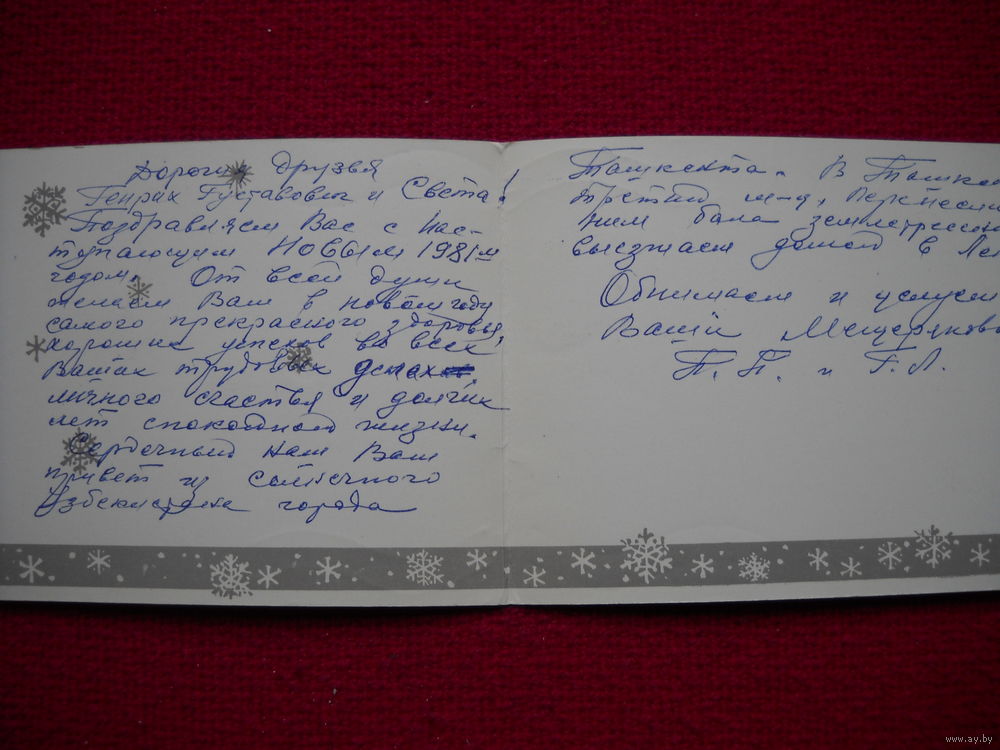 Дорогие Друзья
Генрах Густавович и Света!
Поздравляем Вас с Нас-
тупающим Новым 1981м
годом. От всей души
желаем Вам в новом году
самого прекрасного здоровья,
хороших успехов во всех
Ваших трудовых делах
личного счастья и долгих
лет спокойной жизни.
Сердечный наш Вам
привет из солнечного
Узбекистана города
Ташкента. В Ташке
третий м-ц,
ним бала землетрясени
выезжаем домой в Лен
Обнимаем и целуем
Ваши Мещеряков
П. П. и Г. Л.
www.ay.by